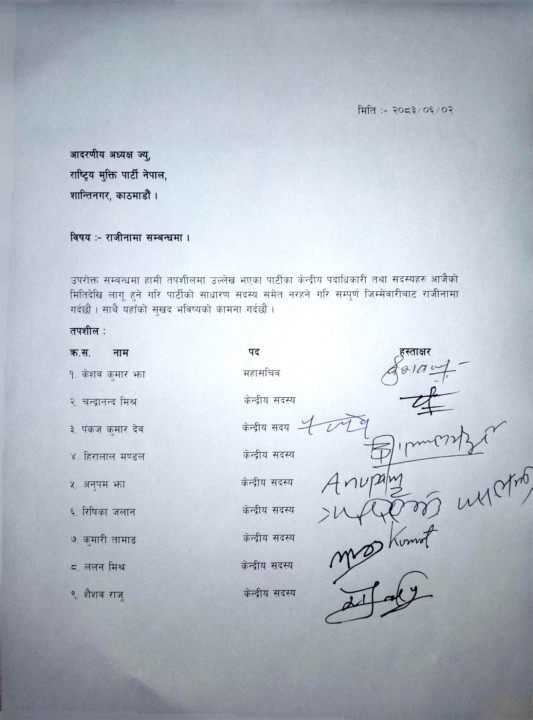 मिति :- २०८३/०६/०२
आदरणीय अध्यक्ष ज्यु,
राष्ट्रिय मुक्ति पार्टी नेपाल,
शान्तिनगर, काठमाडौं ।
विषय :- राजीनामा सम्बन्धमा ।
उपरोक्त सम्बन्धमा हामी तपशीलमा उल्लेख भएका पार्टीका केन्द्रीय पदाधिकारी तथा सदस्यहरु आजैको
मितिदेखि लागू हुने गरि पार्टीको साधारण सदस्य समेत नरहने गरि सम्पुर्ण जिम्मेवारीबाट राजीनामा
गर्दछौं । साथै यहाँको सुखद भविष्यको कामना गर्दछौं ।
तपशील :
क्र.स. नाम पद हस्ताक्षर
१. केशव कुमार झा महासचिव
२. चन्द्रानन्द मिश्र केन्द्रीय सदस्य
३. पंकज कुमार देव केन्द्रीय सदय
४. हिरालाल मण्डल केन्द्रीय सदस्य
५. अनुपम झा केन्द्रीय सदस्य Anupam
६. रिषिका जलान केन्द्रीय सदस्य
७. कुमारी तामाङ केन्द्रीय सदस्य
८. ललन मिश्र केन्द्रीय सदस्य
९. शैशव राजु केन्द्रीय सदस्य